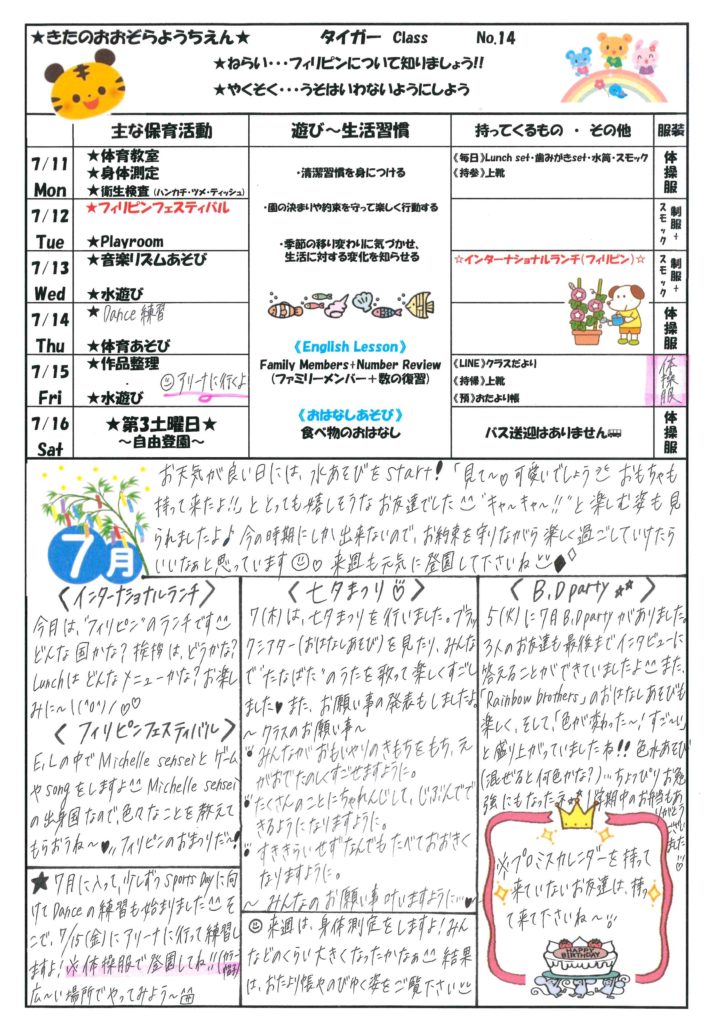 ★きたのおおぞらようちえん★ タイガー Class No.14
★ねらい・・・フィリピンについて知りましょう!!
★やくそく・・・うそはいわないようにしよう
主な保育活動 遊び～生活習慣 持ってくるもの ・ その他 服装
7/11 Mon
★体育教室
★身体測定
★衛生検査 (ハンカチ・ツメ・ティッシュ)
《毎日》Lunch set・歯みがきset・水筒・スモック
《持参》上靴
体操服
7/12 Tue
★フィリピンフェスティバル
★Playroom
制服+スモック
7/13 Wed
★音楽リズムあそび
★水遊び
☆インターナショナルランチ(フィリピン)☆
制服+スモック
7/14 Thu
★Dance練習
★体育あそび
体操服
7/15 Fri
★作品整理
アリーナに行くよ
★水遊び
《LINE》クラスだより
《持帰》上靴
《預》おたより帳
体操服
7/16 Sat
★第3土曜日★
～自由登園～
バス送迎はありません
体操服
・清潔習慣を身につける
・園の決まりや約束を守って楽しく行動する
・季節の移り変わりに気づかせ、
生活に対する変化を知らせる
《English Lesson》
Family Members+Number Review
(ファミリーメンバー+数の復習)
《おはなしあそび》
食べ物のおはなし
7月
お天気が良い日には、水あそびをstart!「見て～♡可愛いでしょう おもちゃも
持って来たよ!!」ととっても嬉しそうなお友達でした "キャ～キャ～!!"と楽しむ姿も見
られましたよ♪ 今の時期にしか出来ないので、お約束を守りながら楽しく過ごしていけたら
いいなぁと思っています♡ 来週も元気に登園して下さいね
〈インターナショナルランチ〉
今月は、"フィリピン"のランチです
どんな国かな？挨拶は、どうかな？
Lunchはどんなメニューかな？お楽し
みに～\(^o^)/♡♡
〈フィリピンフェスティバル〉
E,Lの中でMichelle senseiとゲーム
やsongをしますよ Michelle sensei
の出身国なので、色々なことを教えて
もらおうね～♥,, フィリピンのおまつりだ～!
★7月に入って、少しずつSports Dayに向
けてDanceの練習も始まりました そ
こで、7/15(金)にアリーナに行って練習し
ますよ! ※体操服で登園してね!!
広～い場所でやってみよう～
〈七夕まつり♡〉
7(木)は、七夕まつりを行いました。ブラッ
クシアター(おはなしあそび)を見たり、みんな
で"たなばた"のうたを歌って楽しくすごし
ました♥また、お願い事の発表もしましたよ。
～クラスのお願い事～
・みんながおもいやりのきもちをもち、え
がおでたのしくすごせますように。
・たくさんのことにちゃれんじして、じぶんでで
きるようになりますように。
・すききらいせずなんでもたべておおきく
なりますように。
～みんなのお願い事叶いますように・・・♥
来週は、身体測定をしますよ!みん
などのくらい大きくなったかなぁ 結果
は、おたより帳やのびゆく姿をご覧下さい
〈B.D party★★〉
5(火)に7月B,D partyがありました。
3人のお友達も最後までインタビューに
答えることができていましたよ また、
「Rainbow brothers」のおはなしあそびも
楽しく、そして、「色が変わった～!すご～い!」
と盛り上がっていましたね!! 色水あそび
(混ぜると何色かな？)...ちょっぴりお勉
強にもなったネ
※プロミスカレンダーを持って
来ていないお友達は、持っ
て来て下さいね～!!
HAPPY BIRTHDAY